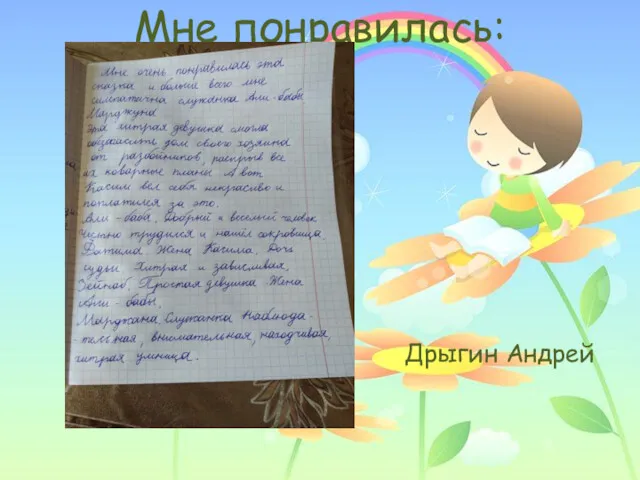 Мне понравилась:
Мне очень понравилась эта
сказка и больше всего мне
симпатична служанка Али-бабы
Марджуна
Эта хитрая девушка смогла
обезопасить дом своего хозяина
от разбойников, раскрыв все
их коварные планы А вот
Касим вел себя некрасиво и
поплатился за это.
Али-баба. Добрый и веселый человек
честно трудился и нашёл сокровища.
Фатима Жена Касима. Дочь
судьи Хитрая и завистливая.
Зейнаб. Простая девушка Жена
Али-бабы.
Марджана. Служанка Наблюда-
-тельная, внимательная, находчивая,
хитрая умница.
Дрыгин Андрей